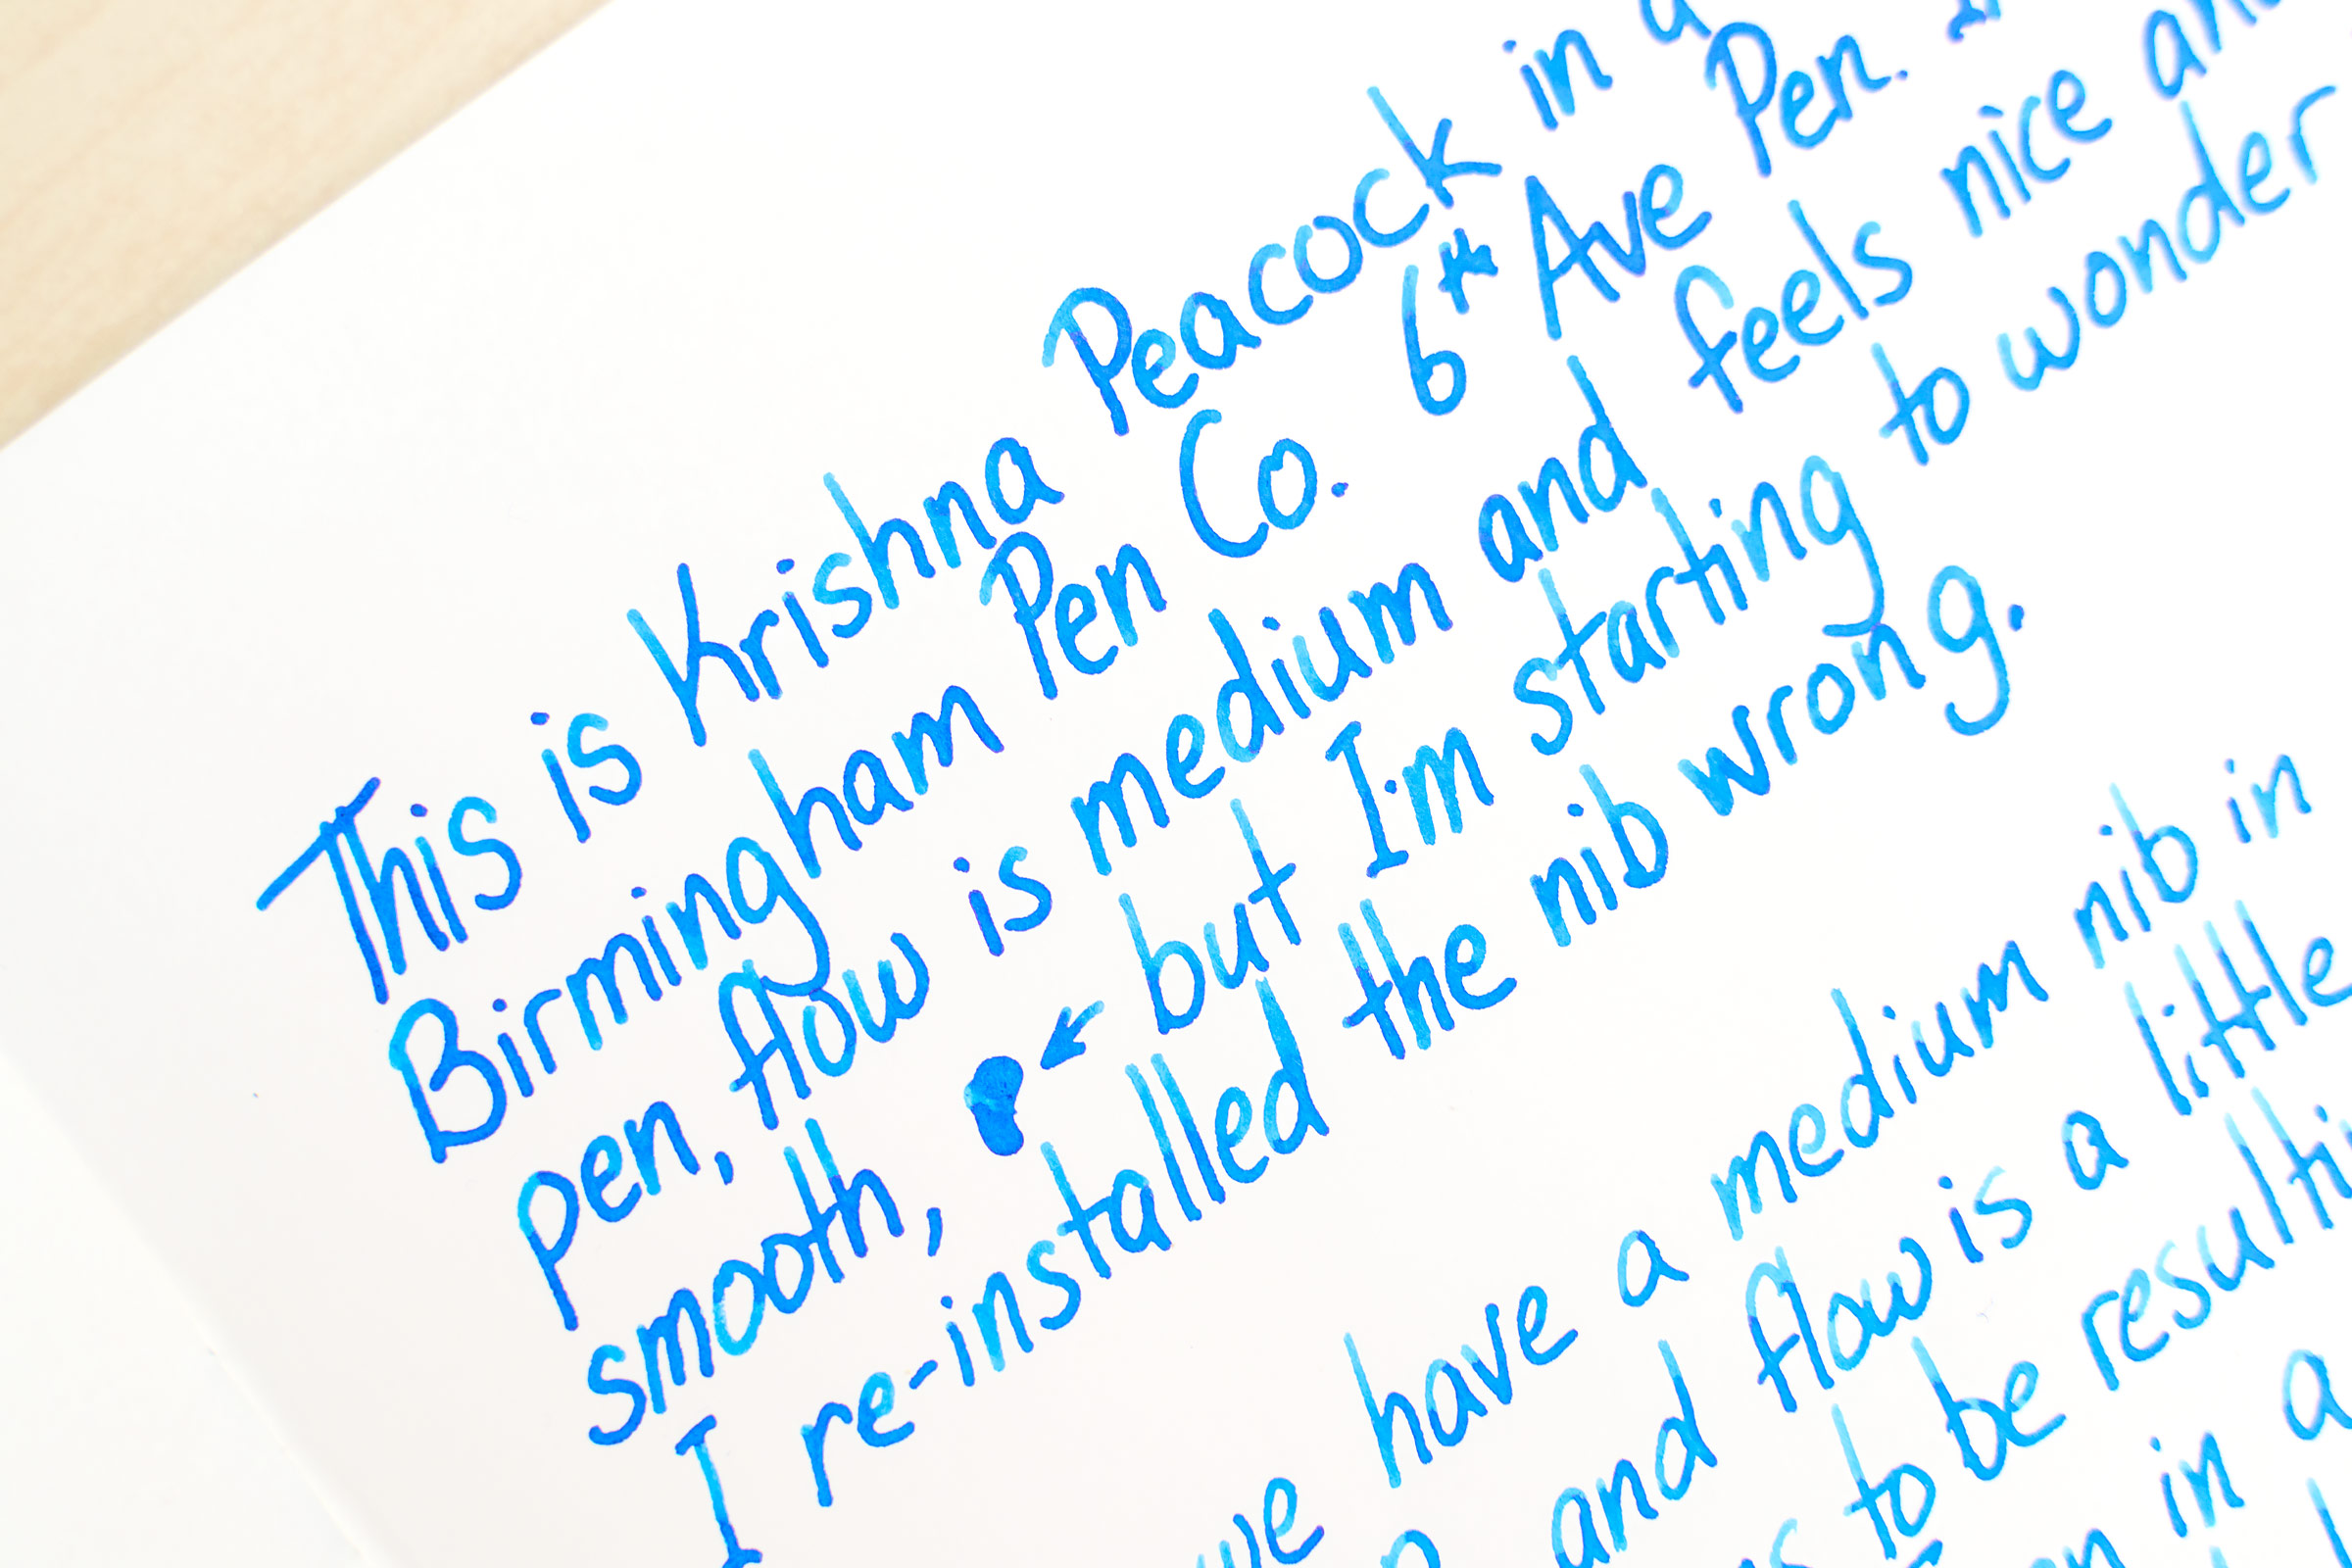 This is Krishna Peacock in a
Birmingham Pen Co. 6th Ave Pen.
pen, flow is medium and feels nice
smooth, ← but I'm starting to wonder
I re-installed the nib wrong.
have a medium nib in
and flow is a little
to be
in a